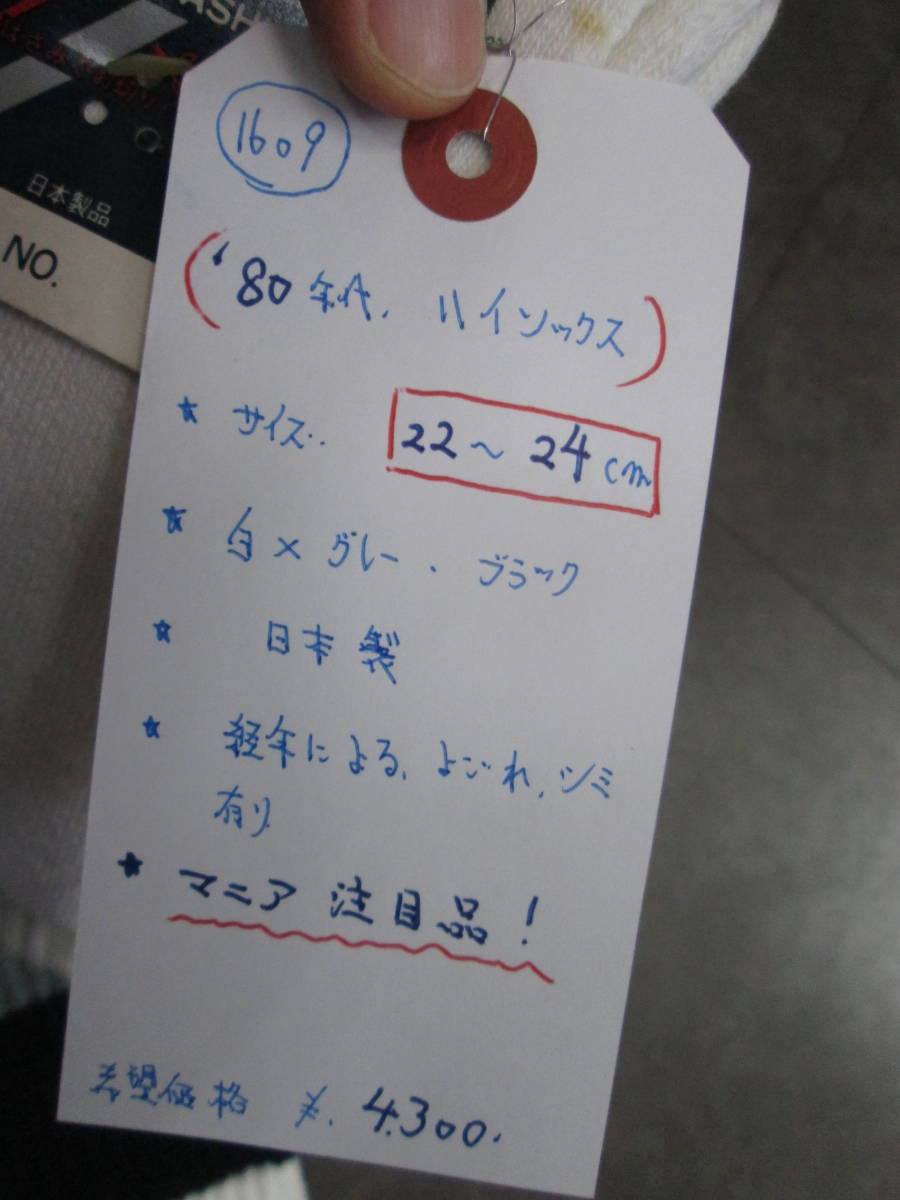 ASH
日本製品
NO.
1609
('80年代. ハイソックス)
★ サイズ.. 22〜24cm
★ 白×グレー . ブラック
★ 日本製
★ 経年による、よごれ、シミ
有り
★ マニア 注目品!
希望価格 ¥. 4.300.